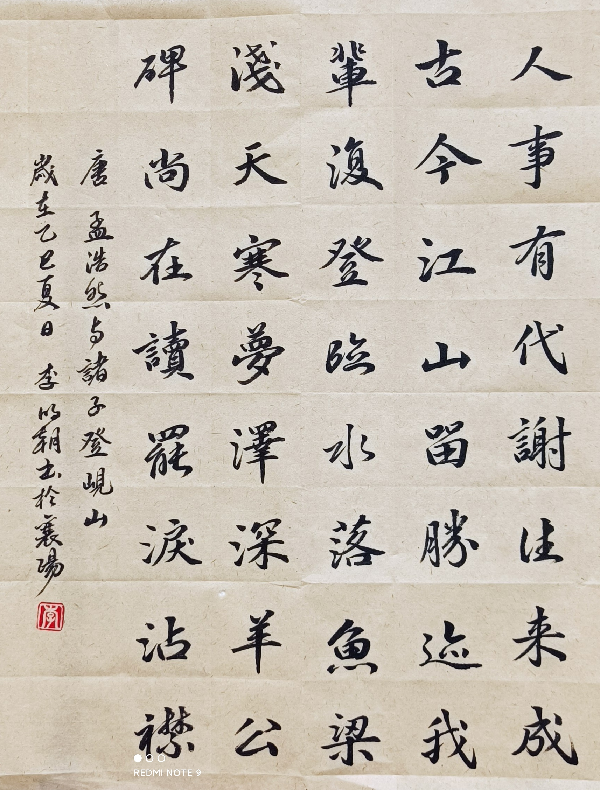 人事有代謝往来成
古今江山留勝迹我
輩復登臨水落魚梁
淺天寒夢澤深羊公
碑尚在讀罷淚沾襟
唐 孟浩然与諸子登峴山
歲在乙巳夏日 李明朝书於襄陽
李
REDMI NOTE 9